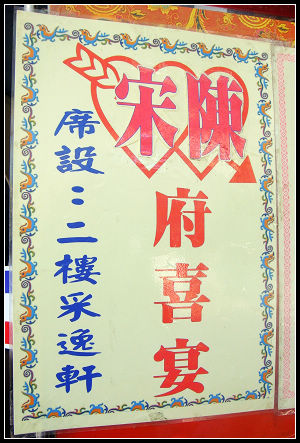 陳宋
府喜宴
席設：二樓采逸軒